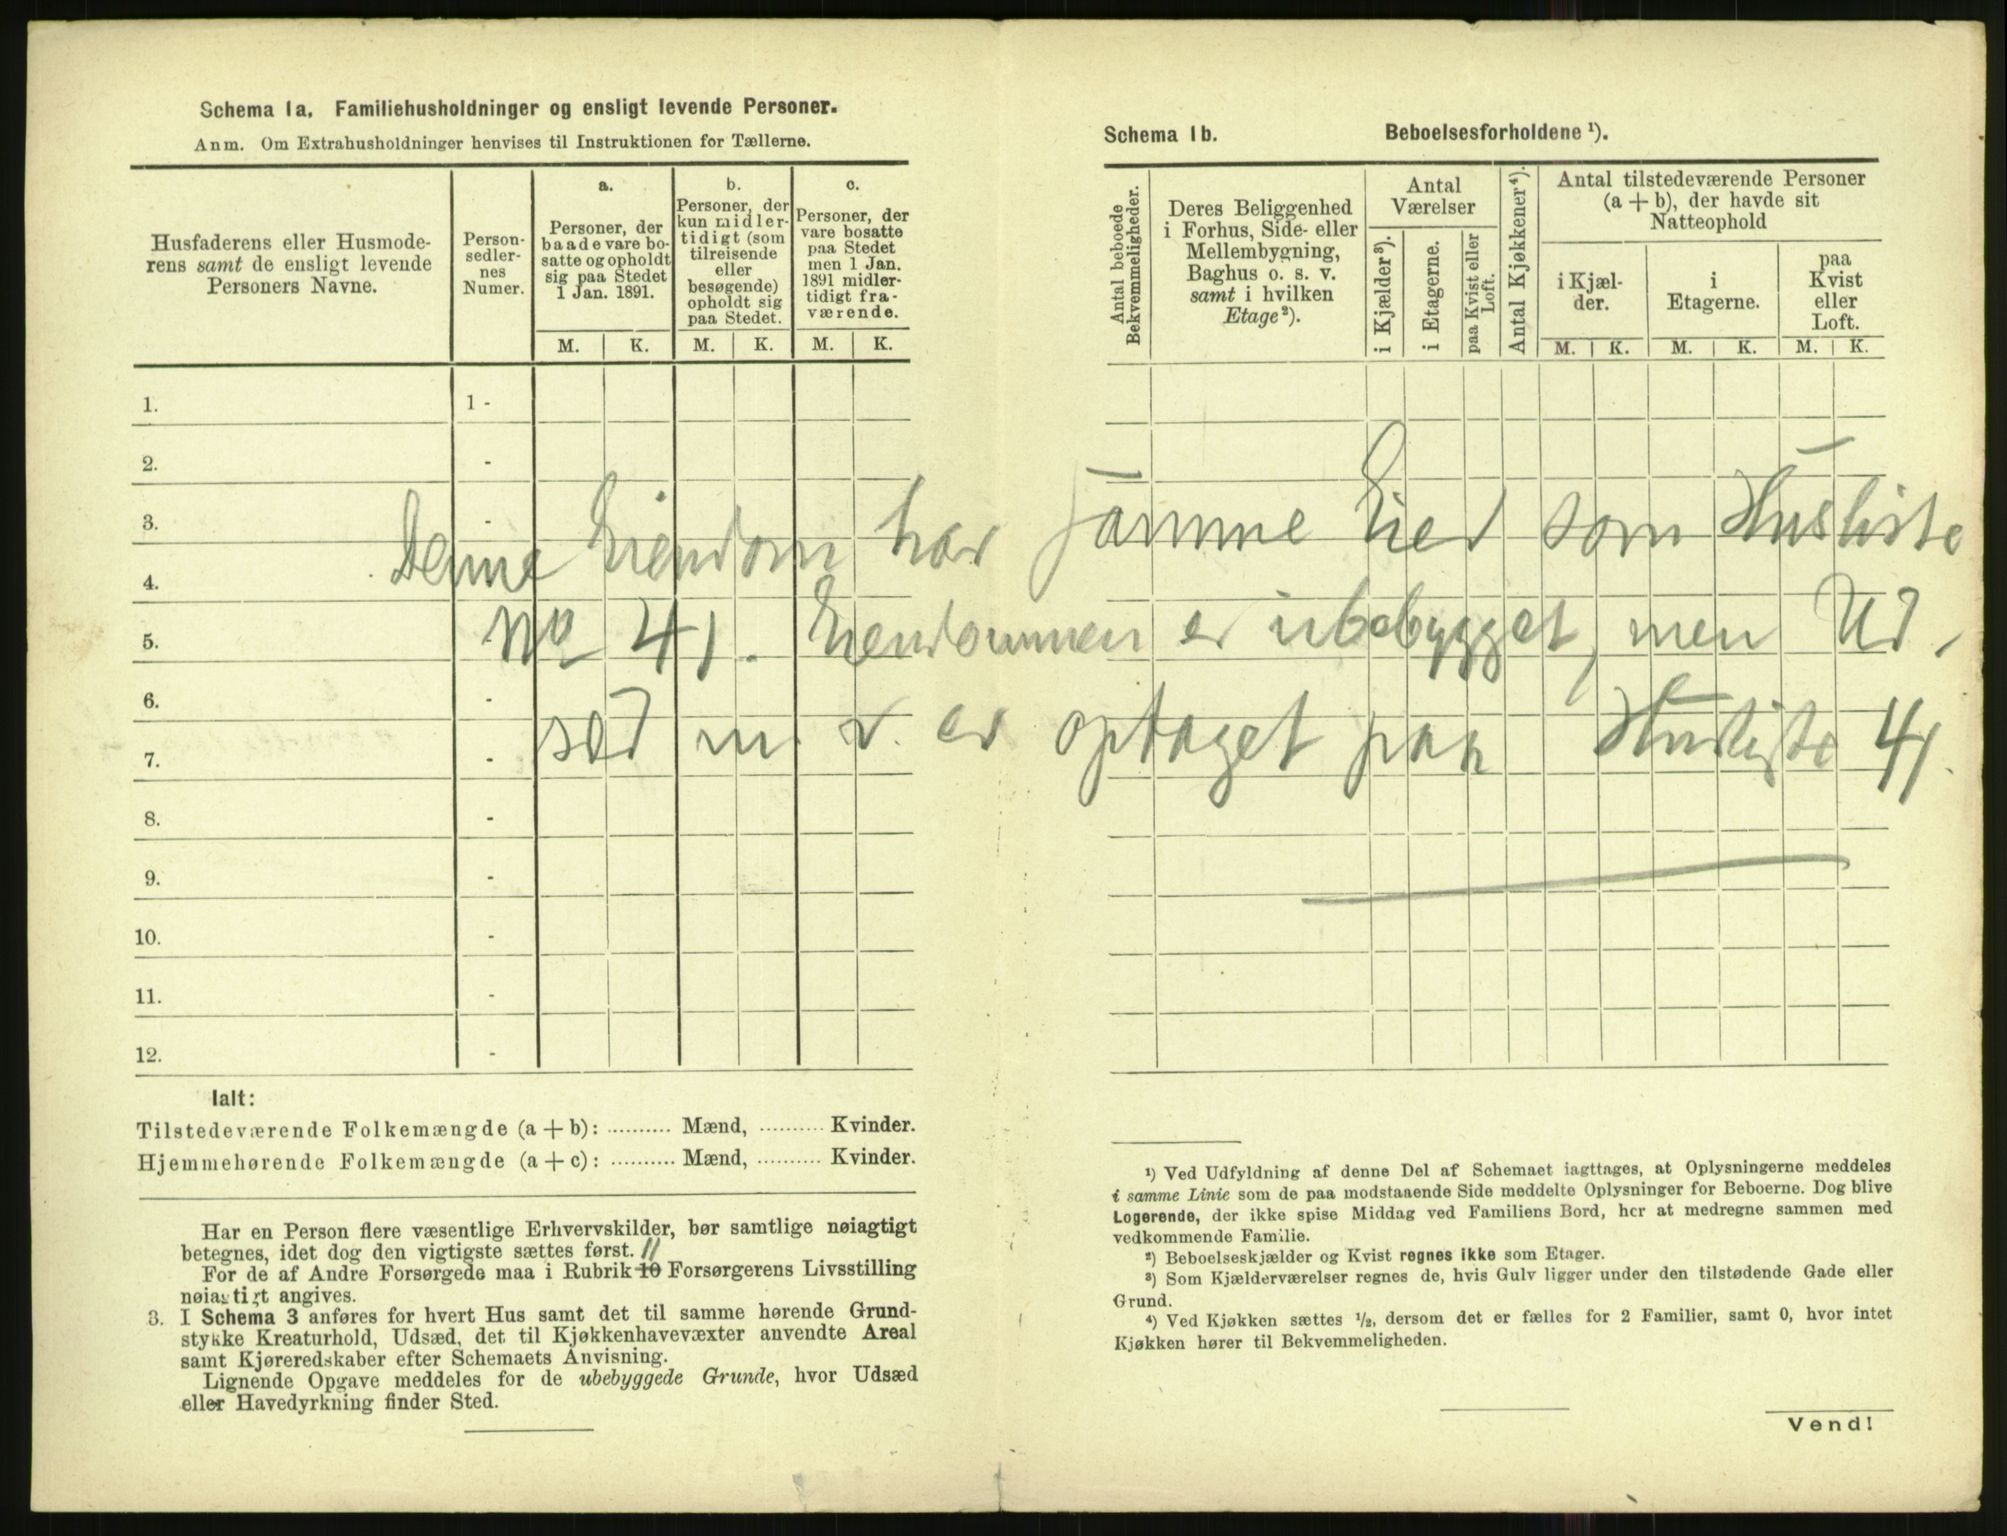 Schema 1a. Familiehusholdninger og ensligt levende Personer.
Anm. Om Extrahusholdninger henvises til Instruktionen for Tællerne.
Husfaderens eller Husmode-
rens samt de ensligt levende
Personers Navne.
Person-
sedler-
nes
Numer.
a.
Personer, der
baade vare bo-
satte og opholdt
sig paa Stedet
1 Jan. 1891.
b.
Personer, der
kun midler-
tidigt (som
tilreisende
eller
besøgende)
opholdt sig
paa Stedet.
c.
Personer, der
vare bosatte
paa Stedet
men 1 Jan.
1891 midler-
tidigt fra-
værende.
M. K. M. K. M. K.
1. 1 -
2. -
3. -
4.
5.
6. -
7. -
8. -
9. -
10. -
11. -
12. -
Ialt:
Tilstedeværende Folkemængde (a + b): .......... Mænd, .......... Kvinder.
Hjemmehørende Folkemængde (a + c): .......... Mænd, .......... Kvinder.
Har en Person flere væsentlige Erhvervskilder, bør samtlige nøiagtigt
betegnes, idet dog den vigtigste sættes først.
For de af Andre Forsørgede maa i Rubrik 10 11 Forsørgerens Livsstilling
nøiagtigt angives.
3. I Schema 3 anføres for hvert Hus samt det til samme hørende Grund-
stykke Kreaturhold, Udsæd, det til Kjøkkenhavevæxter anvendte Areal
samt Kjøreredskaber efter Schemaets Anvisning.
Lignende Opgave meddeles for de ubebyggede Grunde, hvor Udsæd
eller Havedyrkning finder Sted.
Schema 1b. Beboelsesforholdene ¹).
Antal beboede
Bekvemmeligheder.
Deres Beliggenhed
i Forhus, Side- eller
Mellembygning,
Baghus o. s. v.
samt i hvilken
Etage²).
Antal
Værelser
i Kjælder³).
i Etagerne.
paa Kvist eller
Loft.
Antal Kjøkkener⁴).
Antal tilstedeværende Personer
(a + b), der havde sit
Natteophold
i Kjæl-
der.
i
Etagerne.
paa
Kvist
eller
Loft.
M. K. M. K. M. K.
Denne Eiendom har samme Eier som Husliste
No 41. Eiendommen er ubebygget, men Ud-
sæd m. v. er optaget paa Husliste 41.
¹) Ved Udfyldning af denne Del af Schemaet iagttages, at Oplysningerne meddeles
i samme Linie som de paa modstaaende Side meddelte Oplysninger for Beboerne. Dog blive
Logerende, der ikke spise Middag ved Familiens Bord, her at medregne sammen med
vedkommende Familie.
²) Beboelseskjælder og Kvist regnes ikke som Etager.
³) Som Kjælderværelser regnes de, hvis Gulv ligger under den tilstødende Gade eller
Grund.
⁴) Ved Kjøkken sættes ½, dersom det er fælles for 2 Familier, samt 0, hvor intet
Kjøkken hører til Bekvemmeligheden.
Vend!